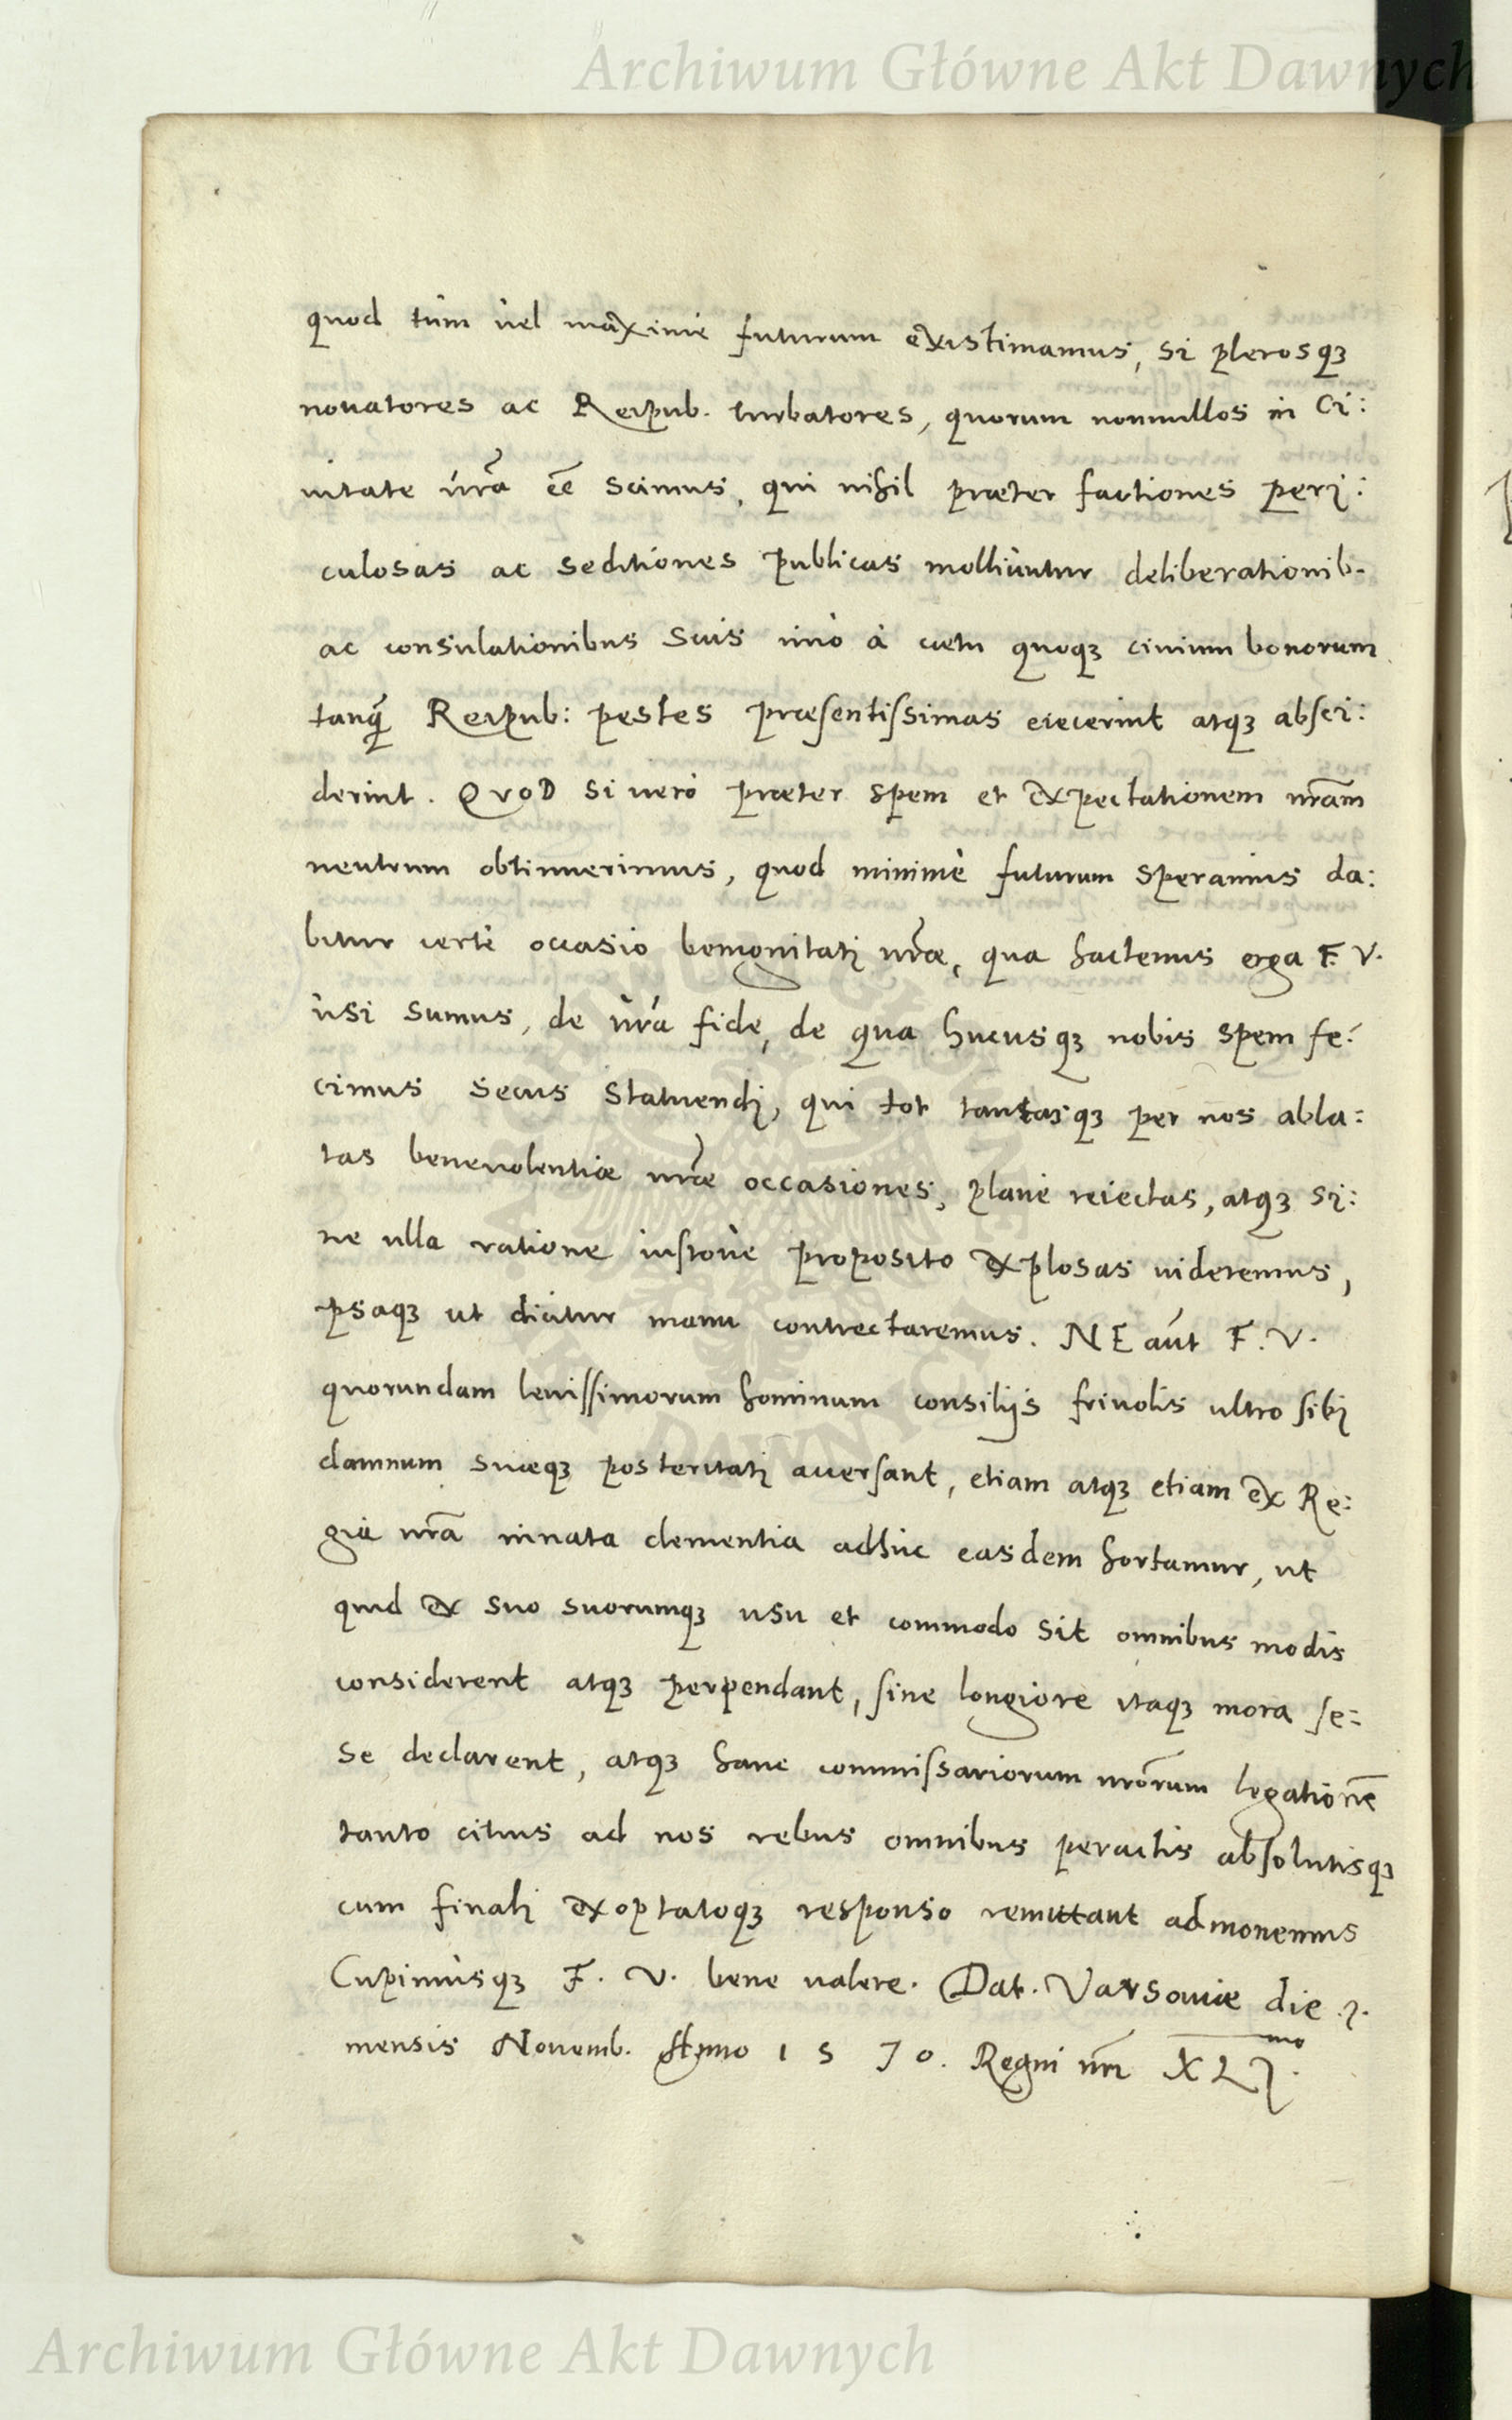 Archiwum Główne Akt Dawnych
quod tùm ùel maximè futurum existimamus, si plerosq3
nouatores ac Reipub. turbatores, quorum nonnullos in Ci:
uitate ùr̃a ee̅ scimus, qui nihil præter factiones peri:
culosas ac seditiones publicas molliuntur deliberationib.
ac consulationibus suis imò à cætu quoq3 ciuium bonorum
tanq̃ Reipub: pestes præsentissimas eiecerint atq3 absci:
derint. QVOD si uerò præter spem et expectationem nr̃am
neutrum obtinuerimus, quod minimè futurum speramus da:
bitur certè occasio benignitati nr̃æ, qua hactenus erga F. V.
ùsi sumus, de ùr̃a fide, de qua hucusq3 nobis spem fe:
cimus secus statuendi, qui tot tantasq3 per nos abla:
tas beneuolentiæ nr̃æ occasiones, planè reiectas, atq3 si:
ne ulla ratione iustouè proposito explosas uideremus,
ipsaq3 ut dicitur manu contrectaremus. NE aũt F. V.
quorundam leuissimorum hominum consilijs friuolis ultro sibi
damnum suæq3 posteritati accersant, etiam atq3 etiam ex Re:
gia nr̃a innata clementia adhùc easdem hortamur, ut
quid ex suo suorumq3 usu et commodo sit omnibus modis
considerent atq3 perpendant, sine longiore itaq3 mora se:
se declarent, atq3 hanc commissariorum nr̃orum legationẽ
tanto citius ad nos rebus omnibus peractis absolutisq3
cum finali exoptatoq3 responso remittant admonemus
Cupimùsq3 F. V. bene ualere. Dat. Varsouiæ die 2.
mensis Nouemb. Anno 1570. Regni nr̃i XLI.mo
Archiwum Główne Akt Dawnych